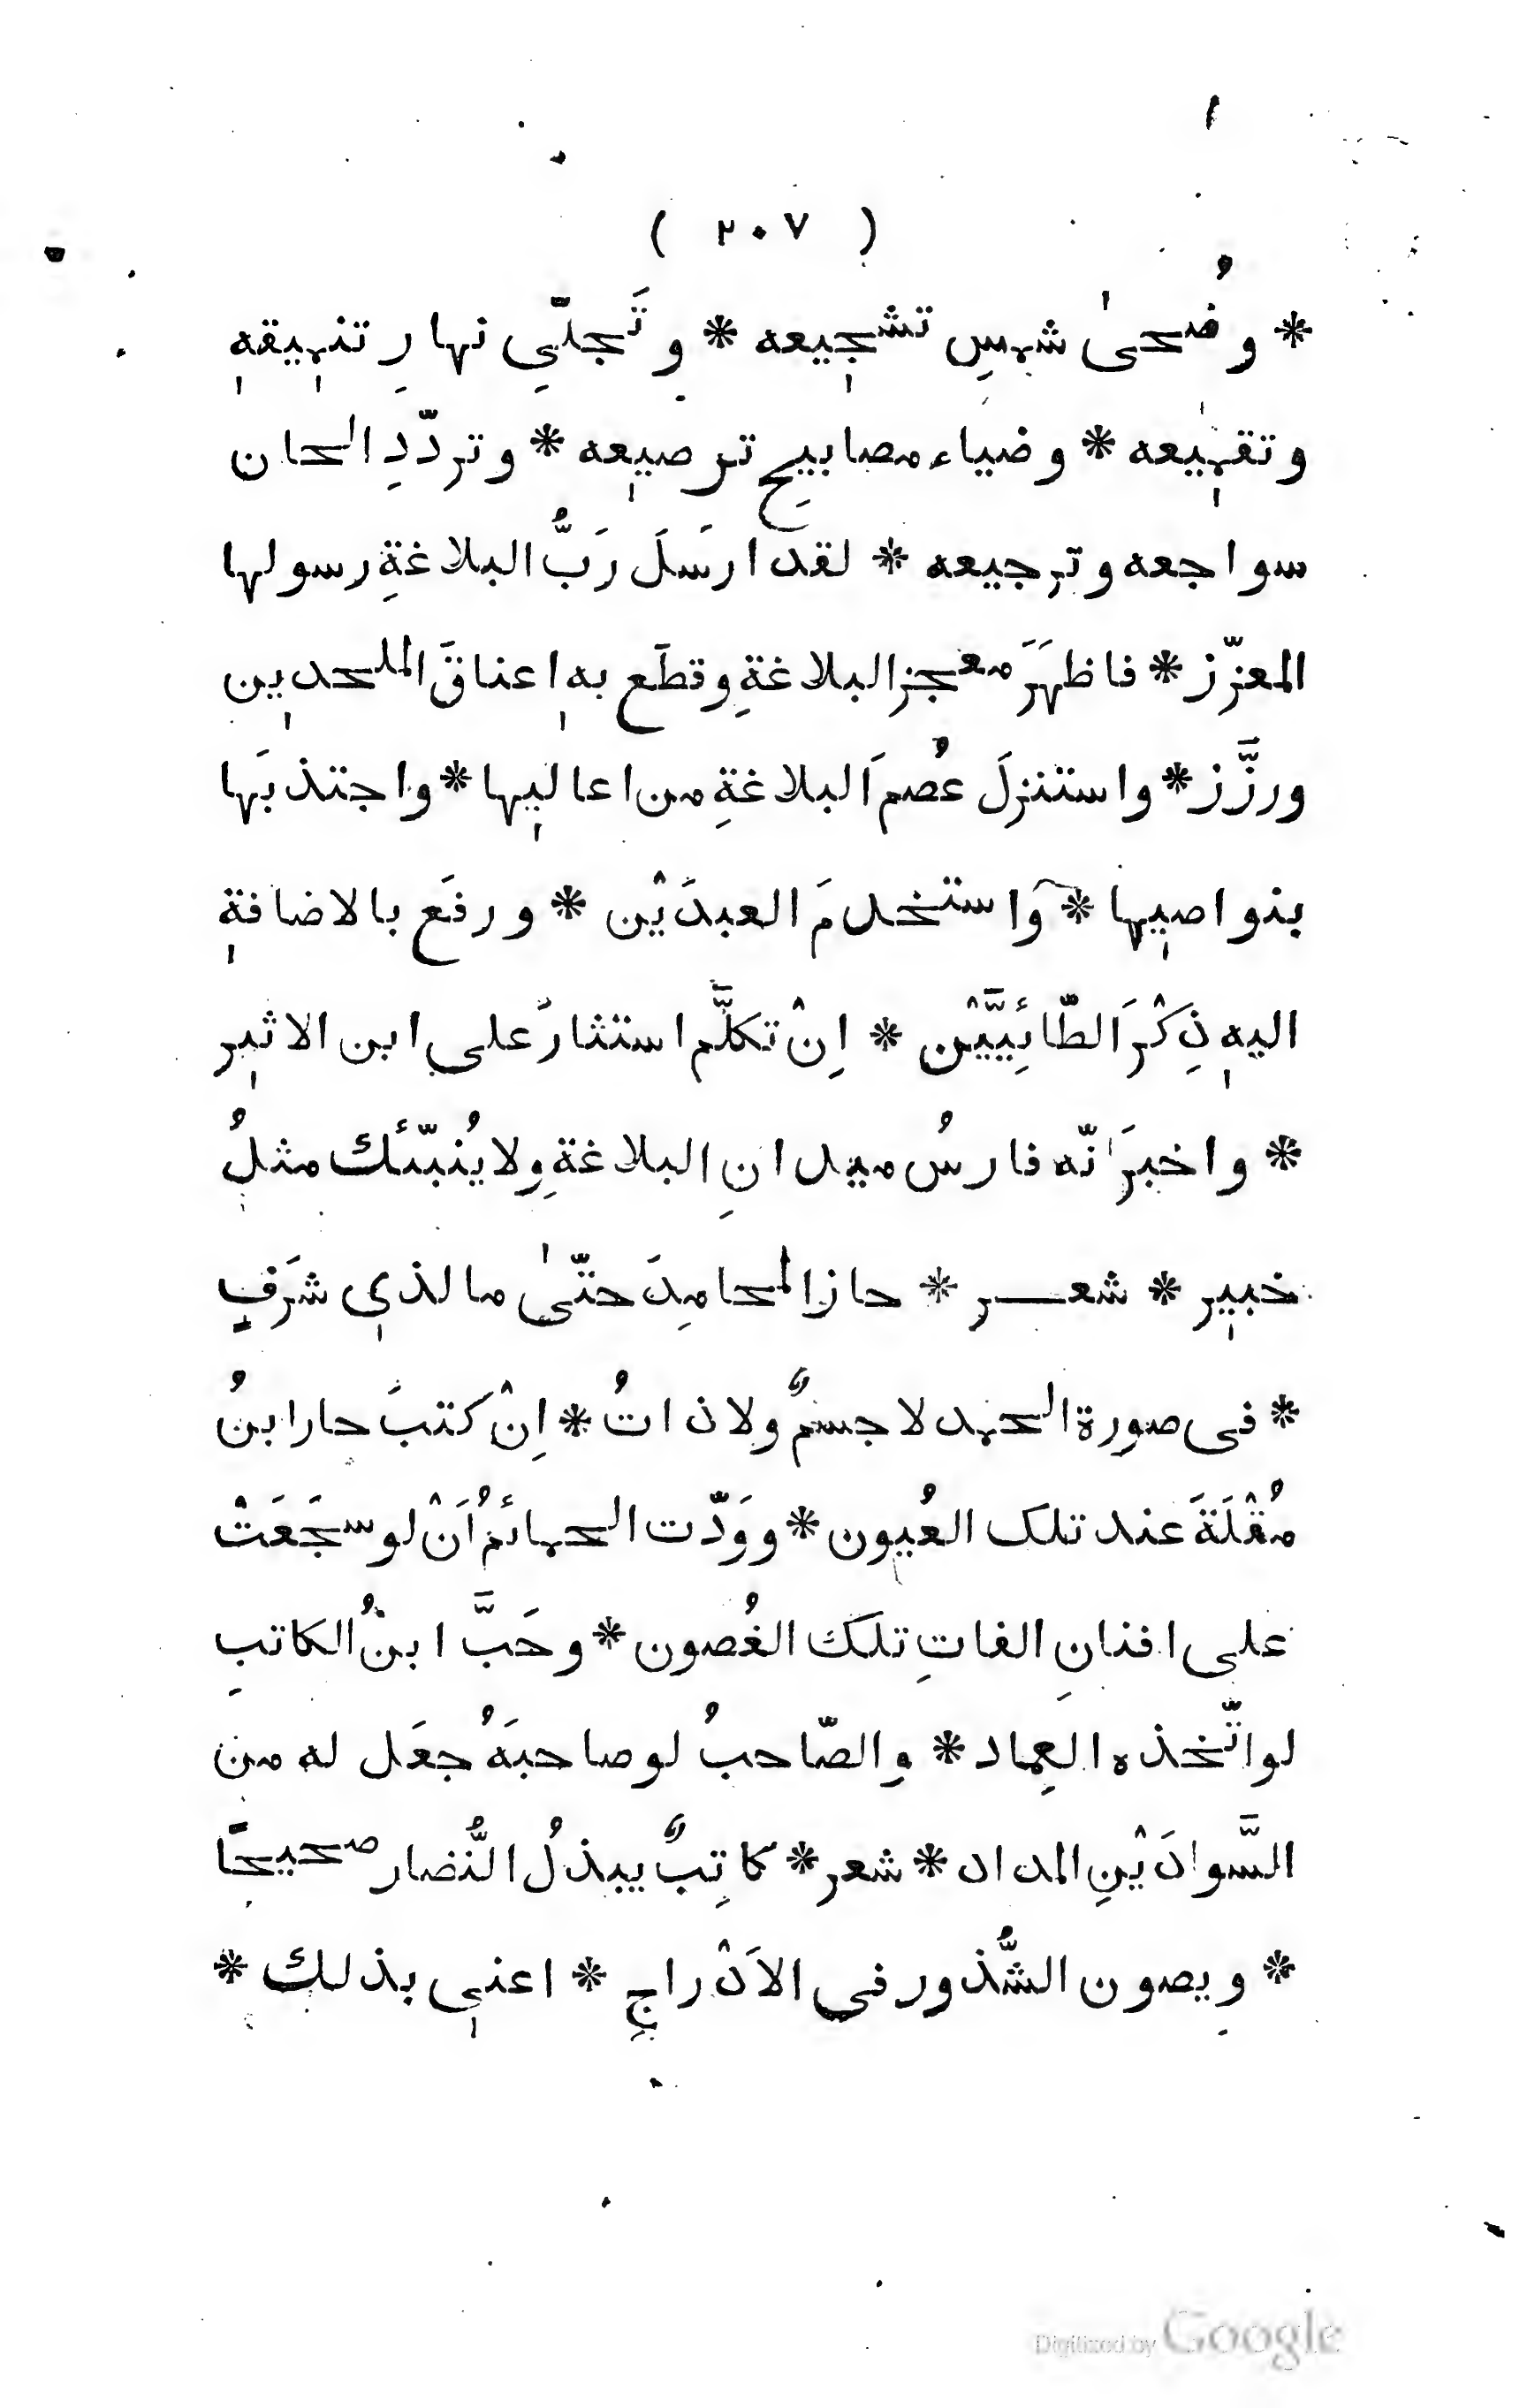 ( ٢٠٧ )
* وضُحىٰ شمسِ تشجيعه * وتَجلّيِ نهارِ تنميقهٖ
وتقميعه * وضياء مصابيحِ ترصيعه * وتردّدِ الحان
سواجعه وترجيعه * لقد ارسَلَ رَبُّ البلاغةِ رسولها
المعزّز * فاظهَرَ معجز البلاغةِ وقطَع بهٖ اعناقَ الملحدين
ورزَّز * واستنزلَ عُصمَ البلاغةِ من اعاليها * واجتذبَها
بنواصيها * وَاستخدمَ العبدَيْن * ورفَع بالاضافةِ
اليهٖ ذِكْرَ الطّائِيَّيْن * اِنْ تكلَّم استثارَ على ابن الاثير
* واخبرَ انّه فارسُ ميدانِ البلاغةِ ولا يُنبّئك مثلُ
خبير * شعر * حاز المحامِدَ حتّىٰ ما لذي شرَفٍ
* في صورة الحمد لا جسمٌ ولا ذاتُ * اِنْ كتبَ حار ابنُ
مُقْلَةَ عند تلك العُيون * ووَدّت الحمائمُ اَنْ لو سجَعَتْ
على افنانِ الفاتِ تلكَ الغُصون * وحَبَّ ابنُ الكاتبِ
لو اتّخذه العِماد * والصّاحبُ لو صاحبَهُ جعَل له من
السَّوادَيْنِ المداد * شعر * كاتِبٌ يبذلُ النُّضار صحيحًا
* ويصون الشُّذور في الاَدْراجِ * اعني بذلك *
Digitized by Google